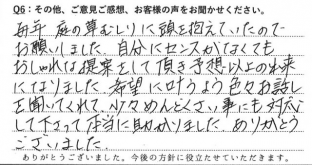 Q6：その他、ご意見ご感想、お客様の声をお聞かせください。
毎年 庭の草むしりに頭を抱えていたので
お願いしました。自分にセンスがなくても
おしゃれな提案をして頂き予想以上の出来
になりました。希望に叶うよう色々お話し
を聞いてくれて、少々めんどくさい事にも対応
して下さって本当に助かりました。ありがとう
ございました。
ありがとうございました。今後の方針に役立たせていただきます。